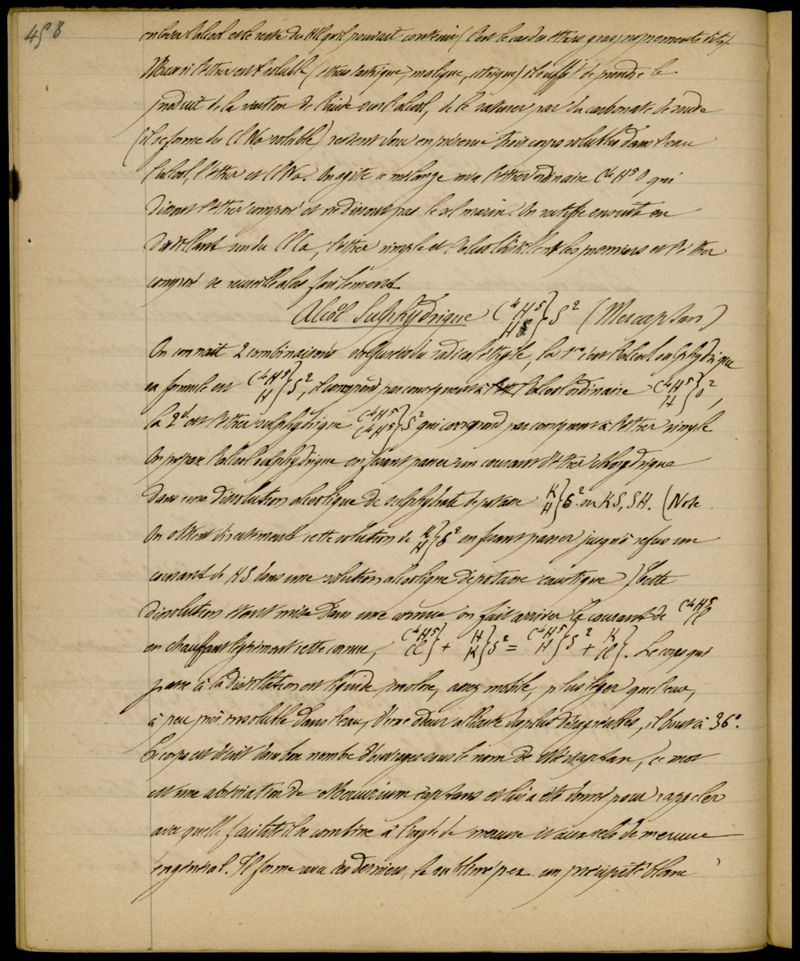 458
enlever l'alcool et le reste du HCl qu'il pourrait contenir (c'est le cas des éthers gras proprement dits).
Mais si l'éther est soluble (éthers tartrique, malique, citrique) il suffit de prendre le
produit de la réaction de l'acide sur l'alcool, de le saturer par du carbonate de soude
(il se forme du ClNa soluble) restent donc en présence trois corps solubles dans l'eau
l'alcool, l'éther et ClNa. On agite ce mélange avec l'éther ordinaire C⁴H⁵O qui
dissout l'éther composé et ne dissout pas le sel marin. On rectifie ensuite en
distillant sur du ClCa, l'éther simple et l'alcool distillent les premiers et l'éther
composé se recueille alors facilement.
Alcool Sulphydrique C⁴H⁵ H } S² (Mercaptan)
On connaît 2 combinaisons sulfurées du radical éthyle, la 1re c'est l'alcool sulphydrique
sa formule est C⁴H⁵ H } S², il correspond par conséquent à l'alcool ordinaire C⁴H⁵ H } O²,
la 2e est l'éther sulphydrique C⁴H⁵ C⁴H⁵ } S² qui correspond par conséquent à l'éther simple
On prépare l'alcool sulphydrique en faisant passer un courant d'éther chlorhydrique
dans une dissolution alcoolique de sulphydrate de potasse K H } S² ou KS, SH. (Note
On obtient directement cette solution de K H } S² en faisant passer jusqu'à refus un
courant de HS dans une solution alcoolique de potasse caustique) Cette
dissolution étant mise dans une cornue on fait arriver le courant de C⁴H⁵ Cl
en chauffant légèrement cette cornue, C⁴H⁵ Cl } + H K } S² = C⁴H⁵ H } S² + K Cl }. Le corps qui
passe à la distillation est liquide, incolore, assez mobile, plus léger que l'eau,
à peu près insoluble dans l'eau, d'une odeur alliacée des plus désagréables, il bout à 36°.
Ce corps est décrit dans bon nombre d'ouvrages sous le nom de Mercaptan, ce mot
est une abréviation de Mercurium captans et lui a été donné pour rappeler
avec quelle facilité il se combine à l'oxyde de mercure et aux sels de mercure
en général. Il forme avec ces derniers, le sublimé p. ex. un précipité blanc